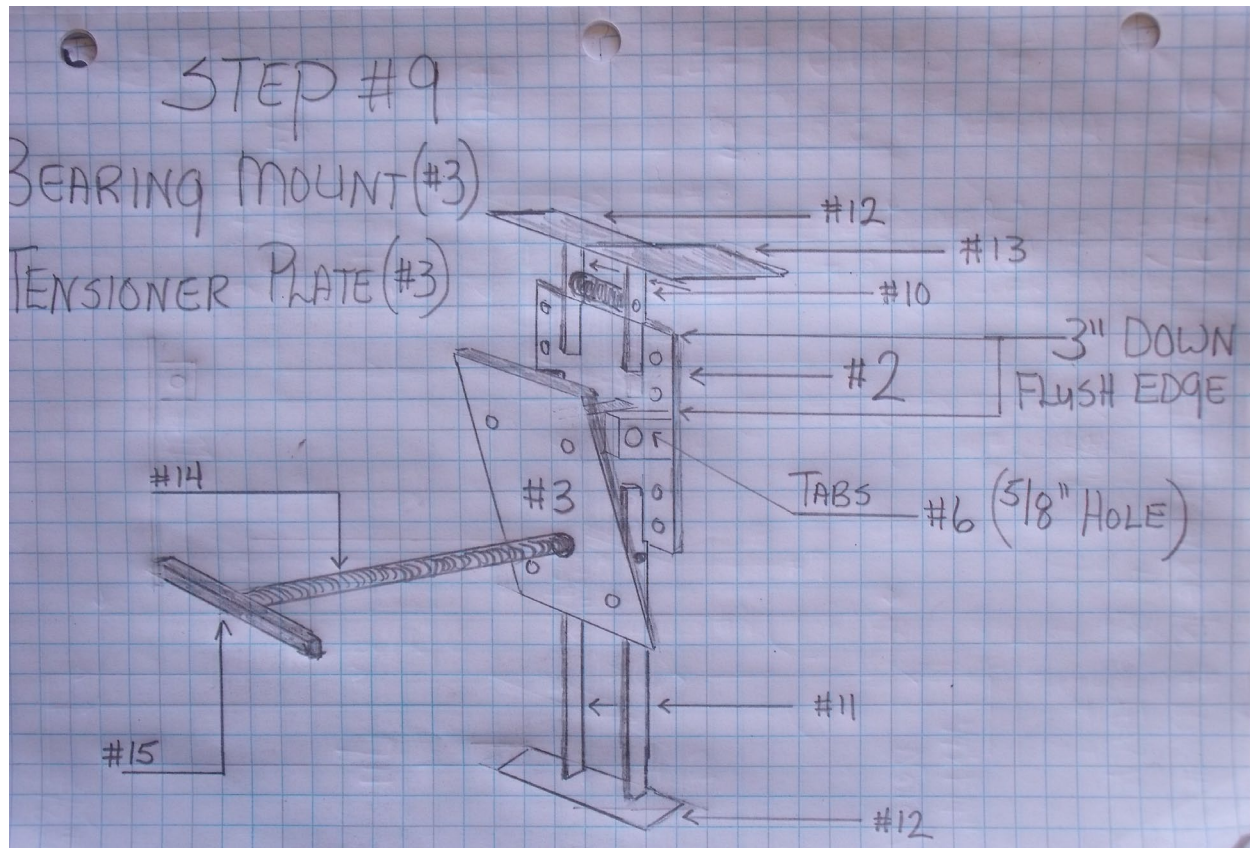 STEP #9
BEARING MOUNT (#3)
TENSIONER PLATE (#3)
#12
#13
#10
3" DOWN
FLUSH EDGE
#2
#14
#3
TABS
#6 (5/8" HOLE)
#11
#15
#12